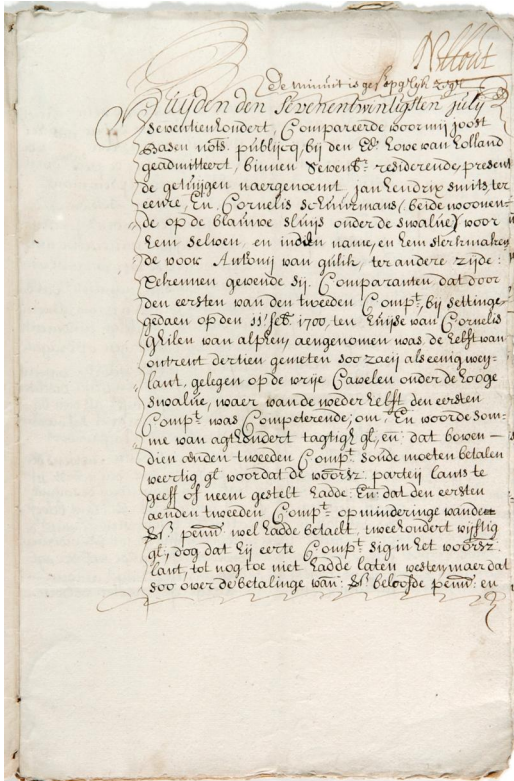 De minuit is gesepgelyk
Huijden den sevenentwintigsten julij
seventienhondert, Compareerde voor mij joost
Basen nots. publijcq, bij den Ed: hove van holland
geadmitteert, binnen Sevenb: residerende, present
de getuijgen naergenoemt, jan hendrix smits, ter
eenre, En Cornelis schuurmans (beide woonen-
de op de blauwe sluijs onder de swaluwe) voor
hem selven, en inden name, en hem sterkmaken
de voor Antonij van gulik, ter andere zijde:
Bekennen gewende sij Comparanten, dat door
den eersten van den tweeden Compt, bij settinge
gedaen op den 11: feb: 1700, ten huijse van Cornelis
ghilen van alphen, aengenomen was, de helft van
ontrent dertien gemeten soo zaeij als eenig wey-
lant, gelegen op de vrije Cavelen onder de hooge
swaluwe, waer van de weder helft den eersten
Compt was Competerende; om, En voor de som-
me van agthondert tagtigh gl, en: dat boven-
dien anden tweeden Compt. soude moeten betalen
veertig gl voor dat de voorsz: partij lants te
geeff of neem gestelt hadde: En dat den eersten
aenden tweeden Compt: op minderinge vande
penn wel hadde betaelt, tweehondert vijfftig
gl, dog dat hij eerte Compt sig in het voorsz:
lant, tot nog toe niet hadde laten vesten, maer dat
soo over de betalinge van: beloofde penn: en